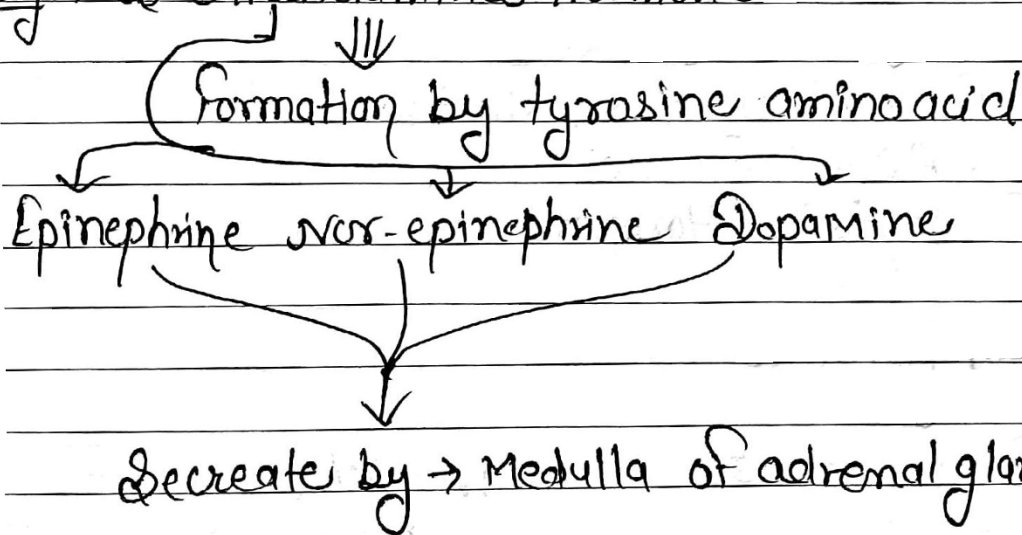 Formation by tyrosine amino acid
Epinephrine Nor-epinephrine Dopamine
Secreate by → Medulla of adrenal